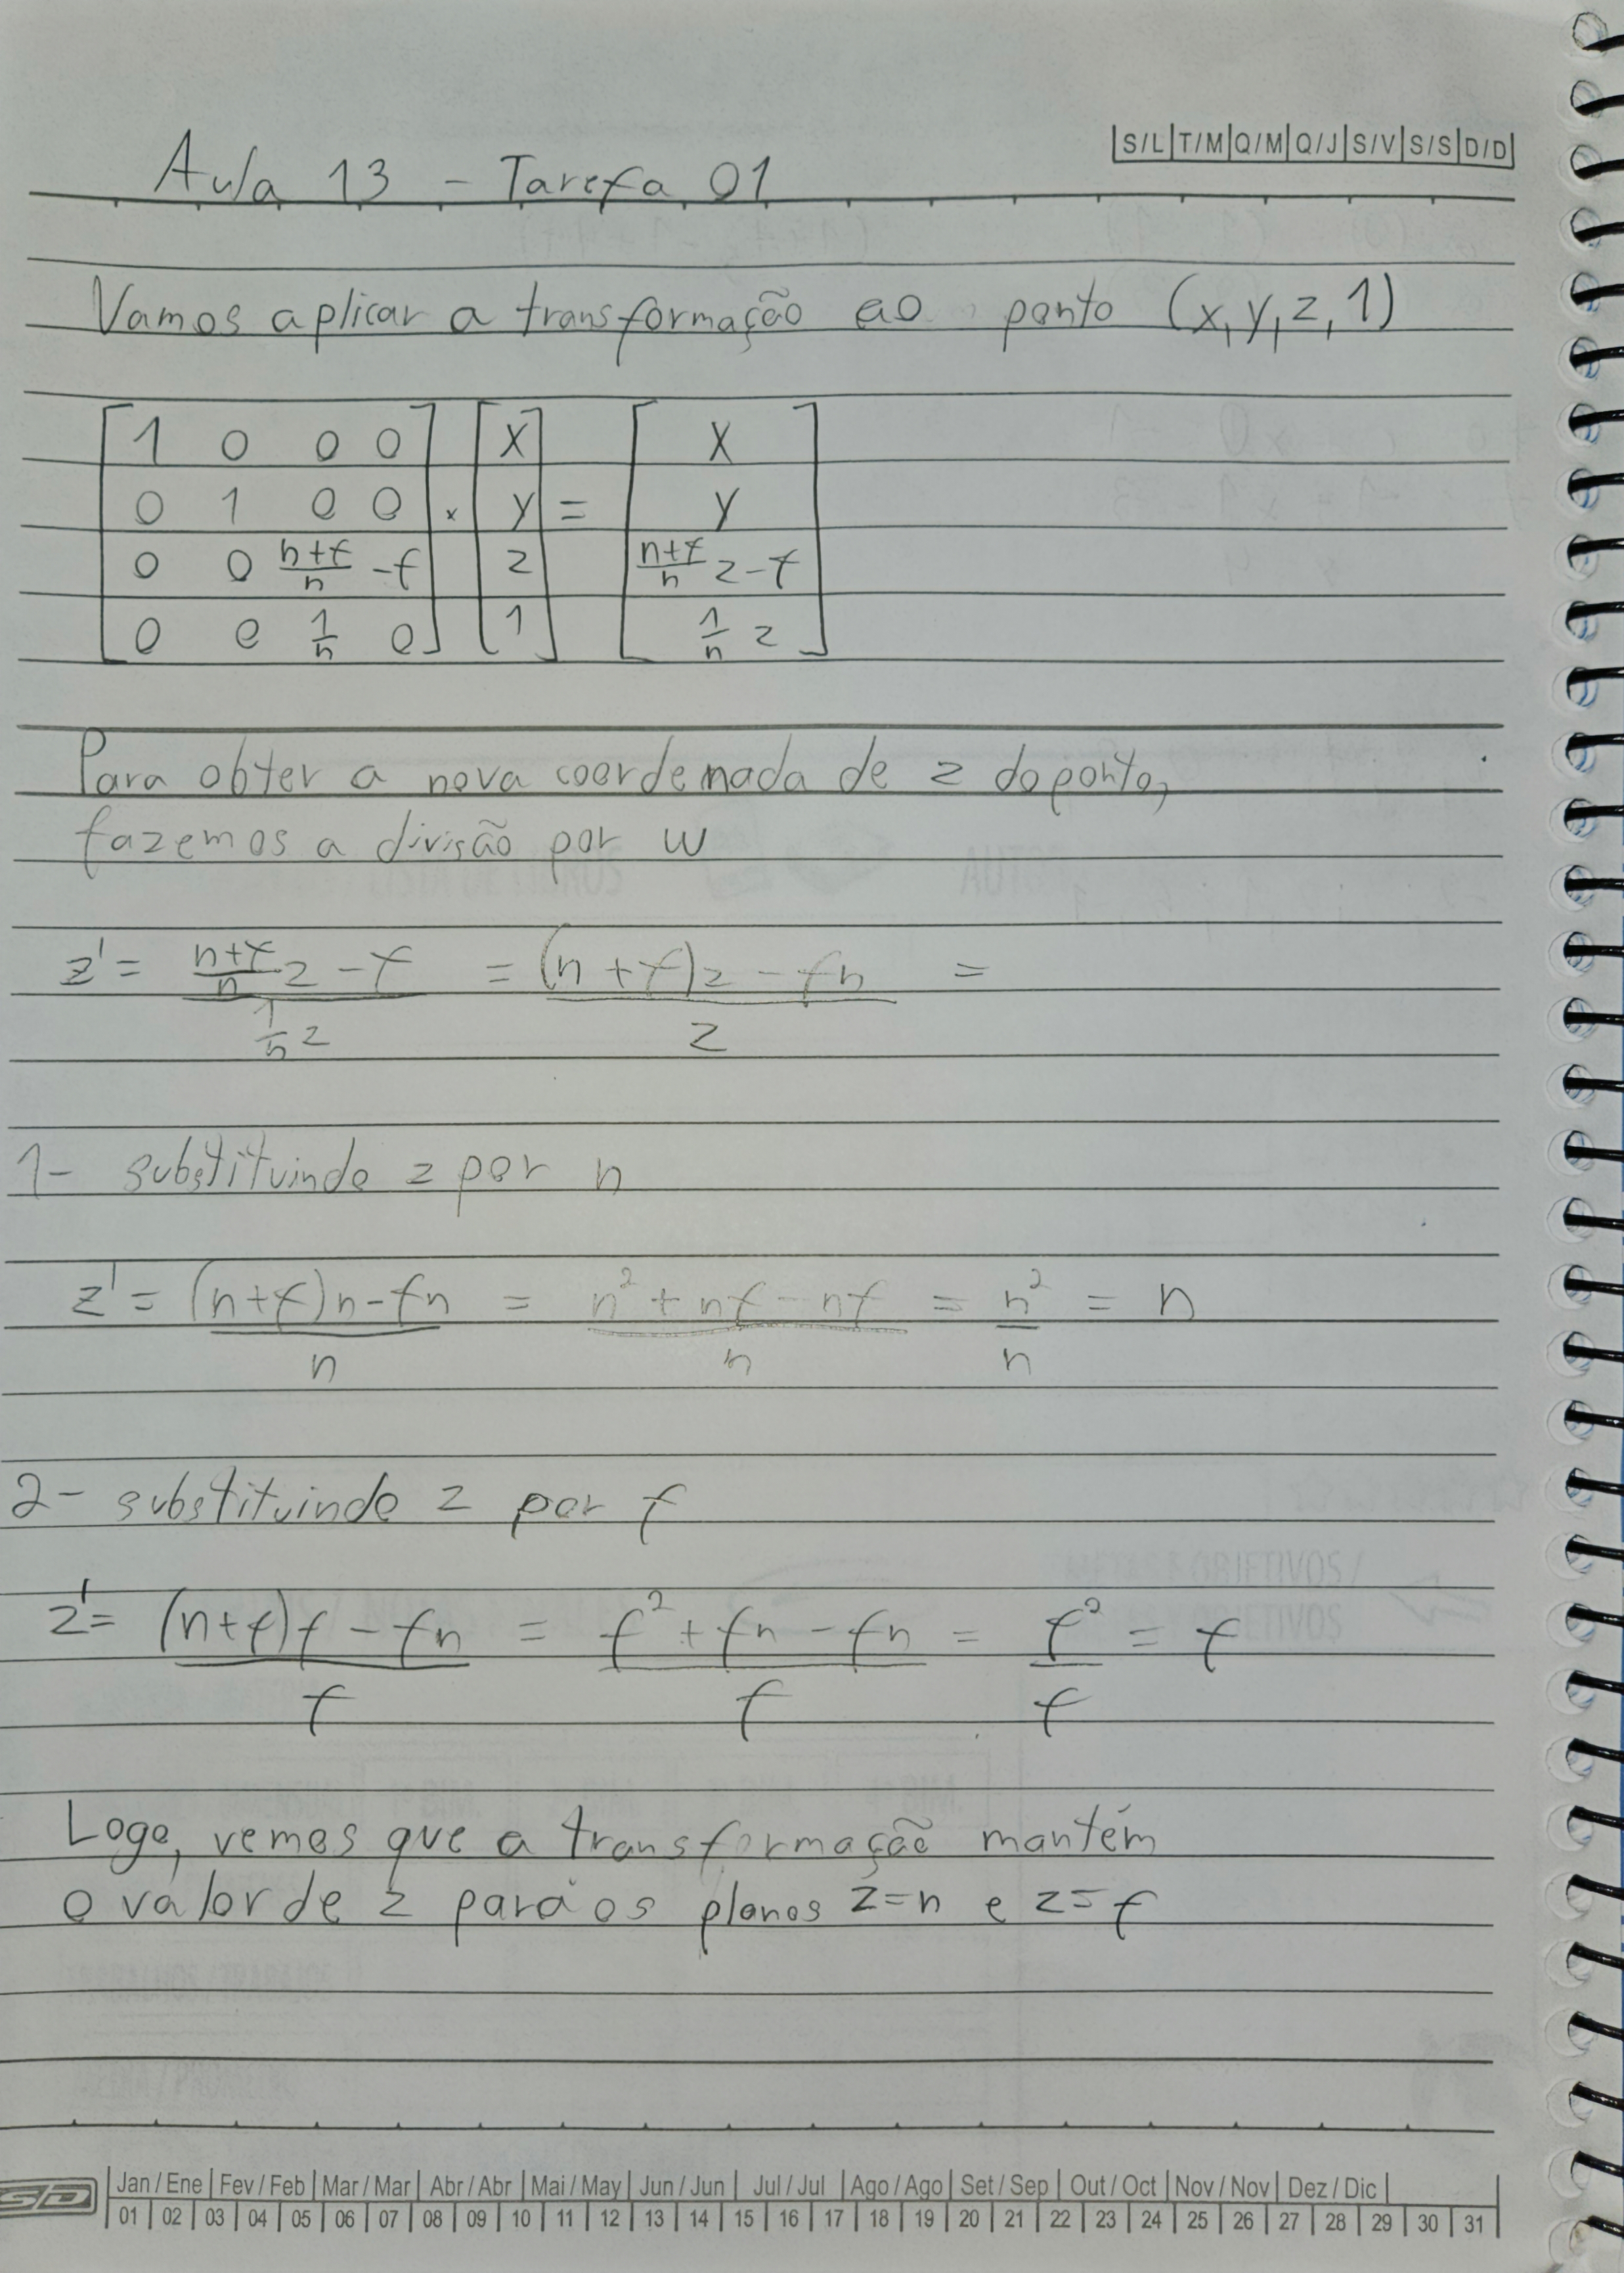 S/L T/M Q/M Q/J S/V S/S D/D
Aula 13 - Tarefa 01
Vamos aplicar a transformação ao ponto (x, y, z, 1)
[1 0 0 0] [x] [x]
[0 1 0 0] . [y] = [y]
[0 0 (n+f)/n -f] [z] [(n+f)/n z - f]
[0 0 1/n 0] [1] [1/n z]
Para obter a nova coordenada de z do ponto,
fazemos a divisão por w
z' = ((n+f)/n z - f)/(1/n z) = ((n+f)z - fn)/z =
1- substituindo z por n
z' = ((n+f)n - fn)/n = (n² + nf - nf)/n = n²/n = n
2- substituindo z por f
z' = ((n+f)f - fn)/f = (f² + fn - fn)/f = f²/f = f
Logo, vemos que a transformação mantém
o valor de z para os planos z=n e z=f
SD Jan/Ene Fev/Feb Mar/Mar Abr/Abr Mai/May Jun/Jun Jul/Jul Ago/Ago Set/Sep Out/Oct Nov/Nov Dez/Dic
01 02 03 04 05 06 07 08 09 10 11 12 13 14 15 16 17 18 19 20 21 22 23 24 25 26 27 28 29 30 31